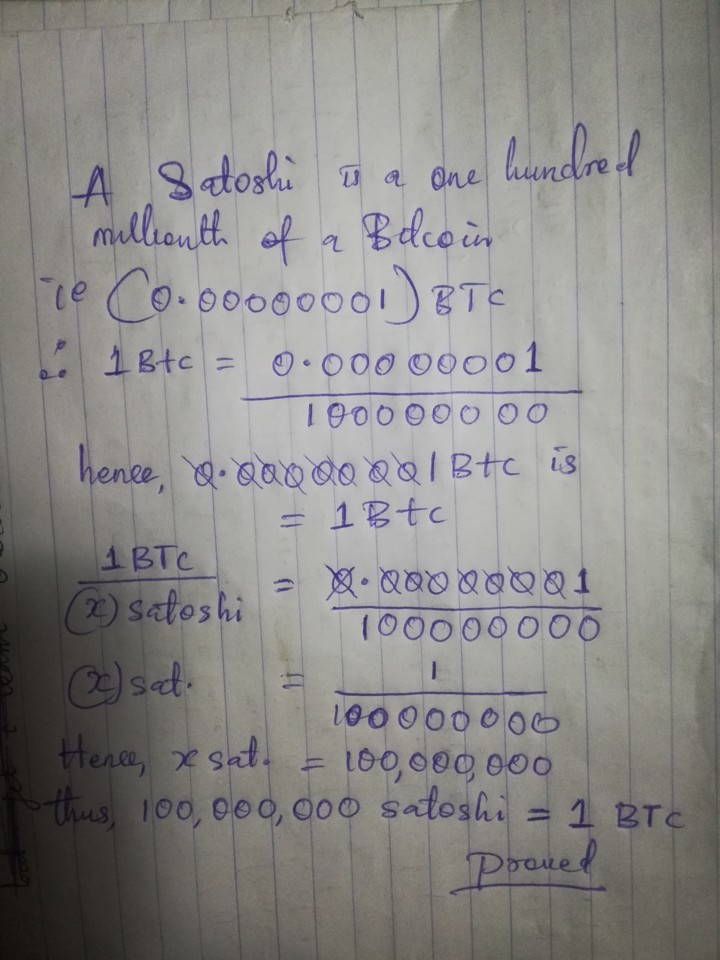 A Satoshi is a one hundred
millionth of a Bitcoin
ie (0.00000001) BTC
∴ 1Btc = 0.00000001
100000000
hence, 0.00000001 Btc is
= 1Btc
1BTC
(x) satoshi
= 0.00000001
100000000
(x) sat. = 1
100000000
Hence, x sat. = 100,000,000
thus, 100,000,000 satoshi = 1 BTC
proved